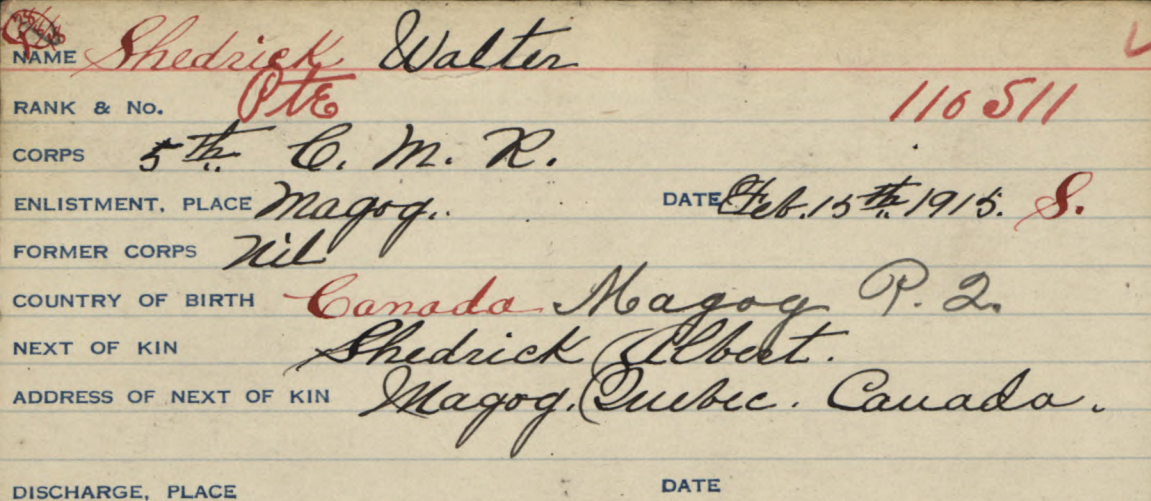 NAME Shedrick Walter
RANK & No. Pte 110511
CORPS 5th C. M. R.
ENLISTMENT, PLACE Magog. DATE Feb. 15th 1915. S.
FORMER CORPS Nil
COUNTRY OF BIRTH Canada Magog P. 2.
NEXT OF KIN Shedrick Albert.
ADDRESS OF NEXT OF KIN Magog. Quebec. Canada.
DISCHARGE, PLACE DATE